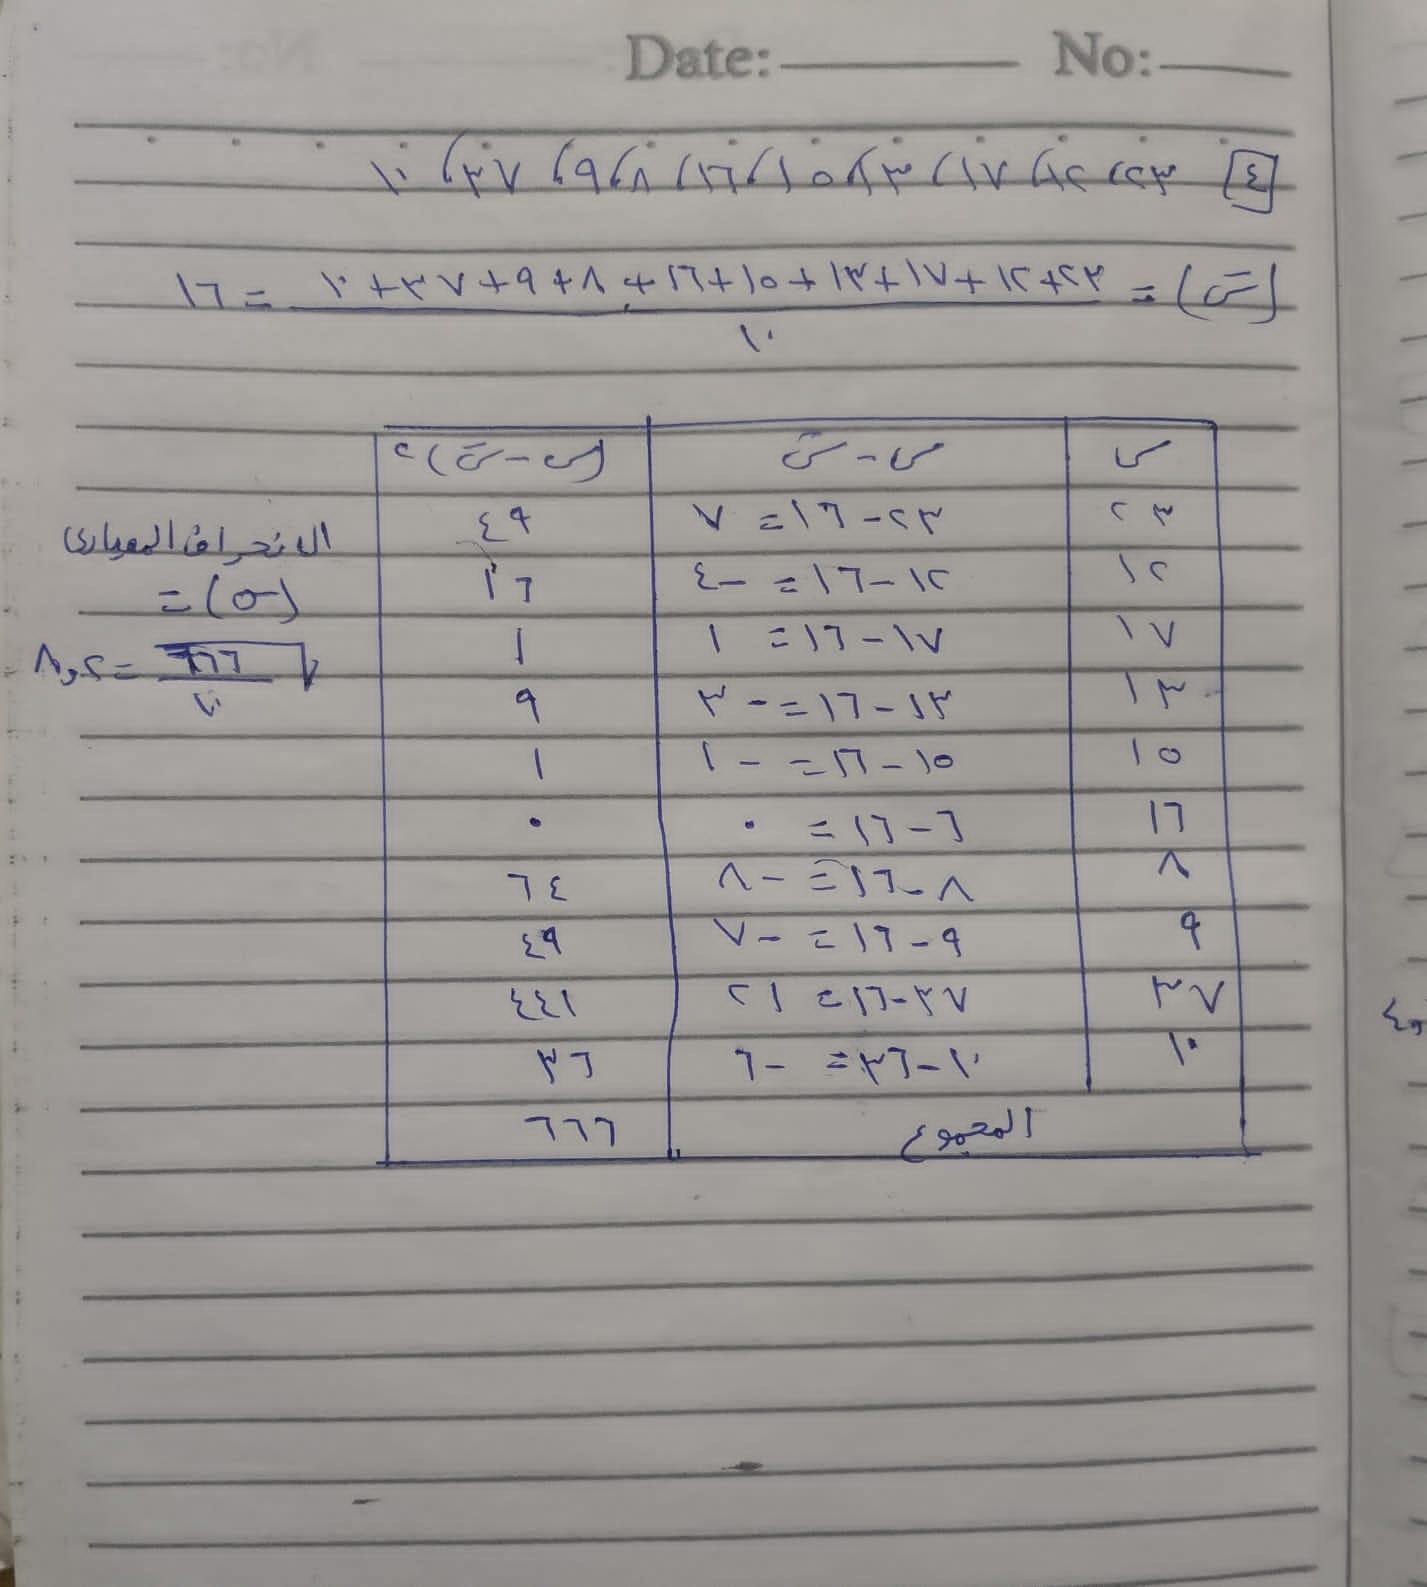 Date: No:
٤ ٢٣، ١٢، ١٧، ١٣، ١٥، ١٦، ٨، ٩، ٣٧، ١٠
(س̄) = ٢٣+١٢+١٧+١٣+١٥+١٦+٨+٩+٣٧+١٠ = ١٦
١٠
س س - س̄ (س - س̄)٢
٢٣ ٢٣-١٦= ٧ ٤٩
١٢ ١٢-١٦= -٤ ١٦
١٧ ١٧-١٦= ١ ١
١٣ ١٣-١٦= -٣ ٩
١٥ ١٥-١٦= -١ ١
١٦ ٦-١٦= ٠ ٠
٨ ٨-١٦= -٨ ٦٤
٩ ٩-١٦= -٧ ٤٩
٣٧ ٣٧-١٦= ٢١ ٤٤١
١٠ ١٠-٣٦= -٦ ٣٦
المجموع ٦٦٦
الانحراف المعيارى
(σ) =
√٦٦٦ = ٨,٢
١٠